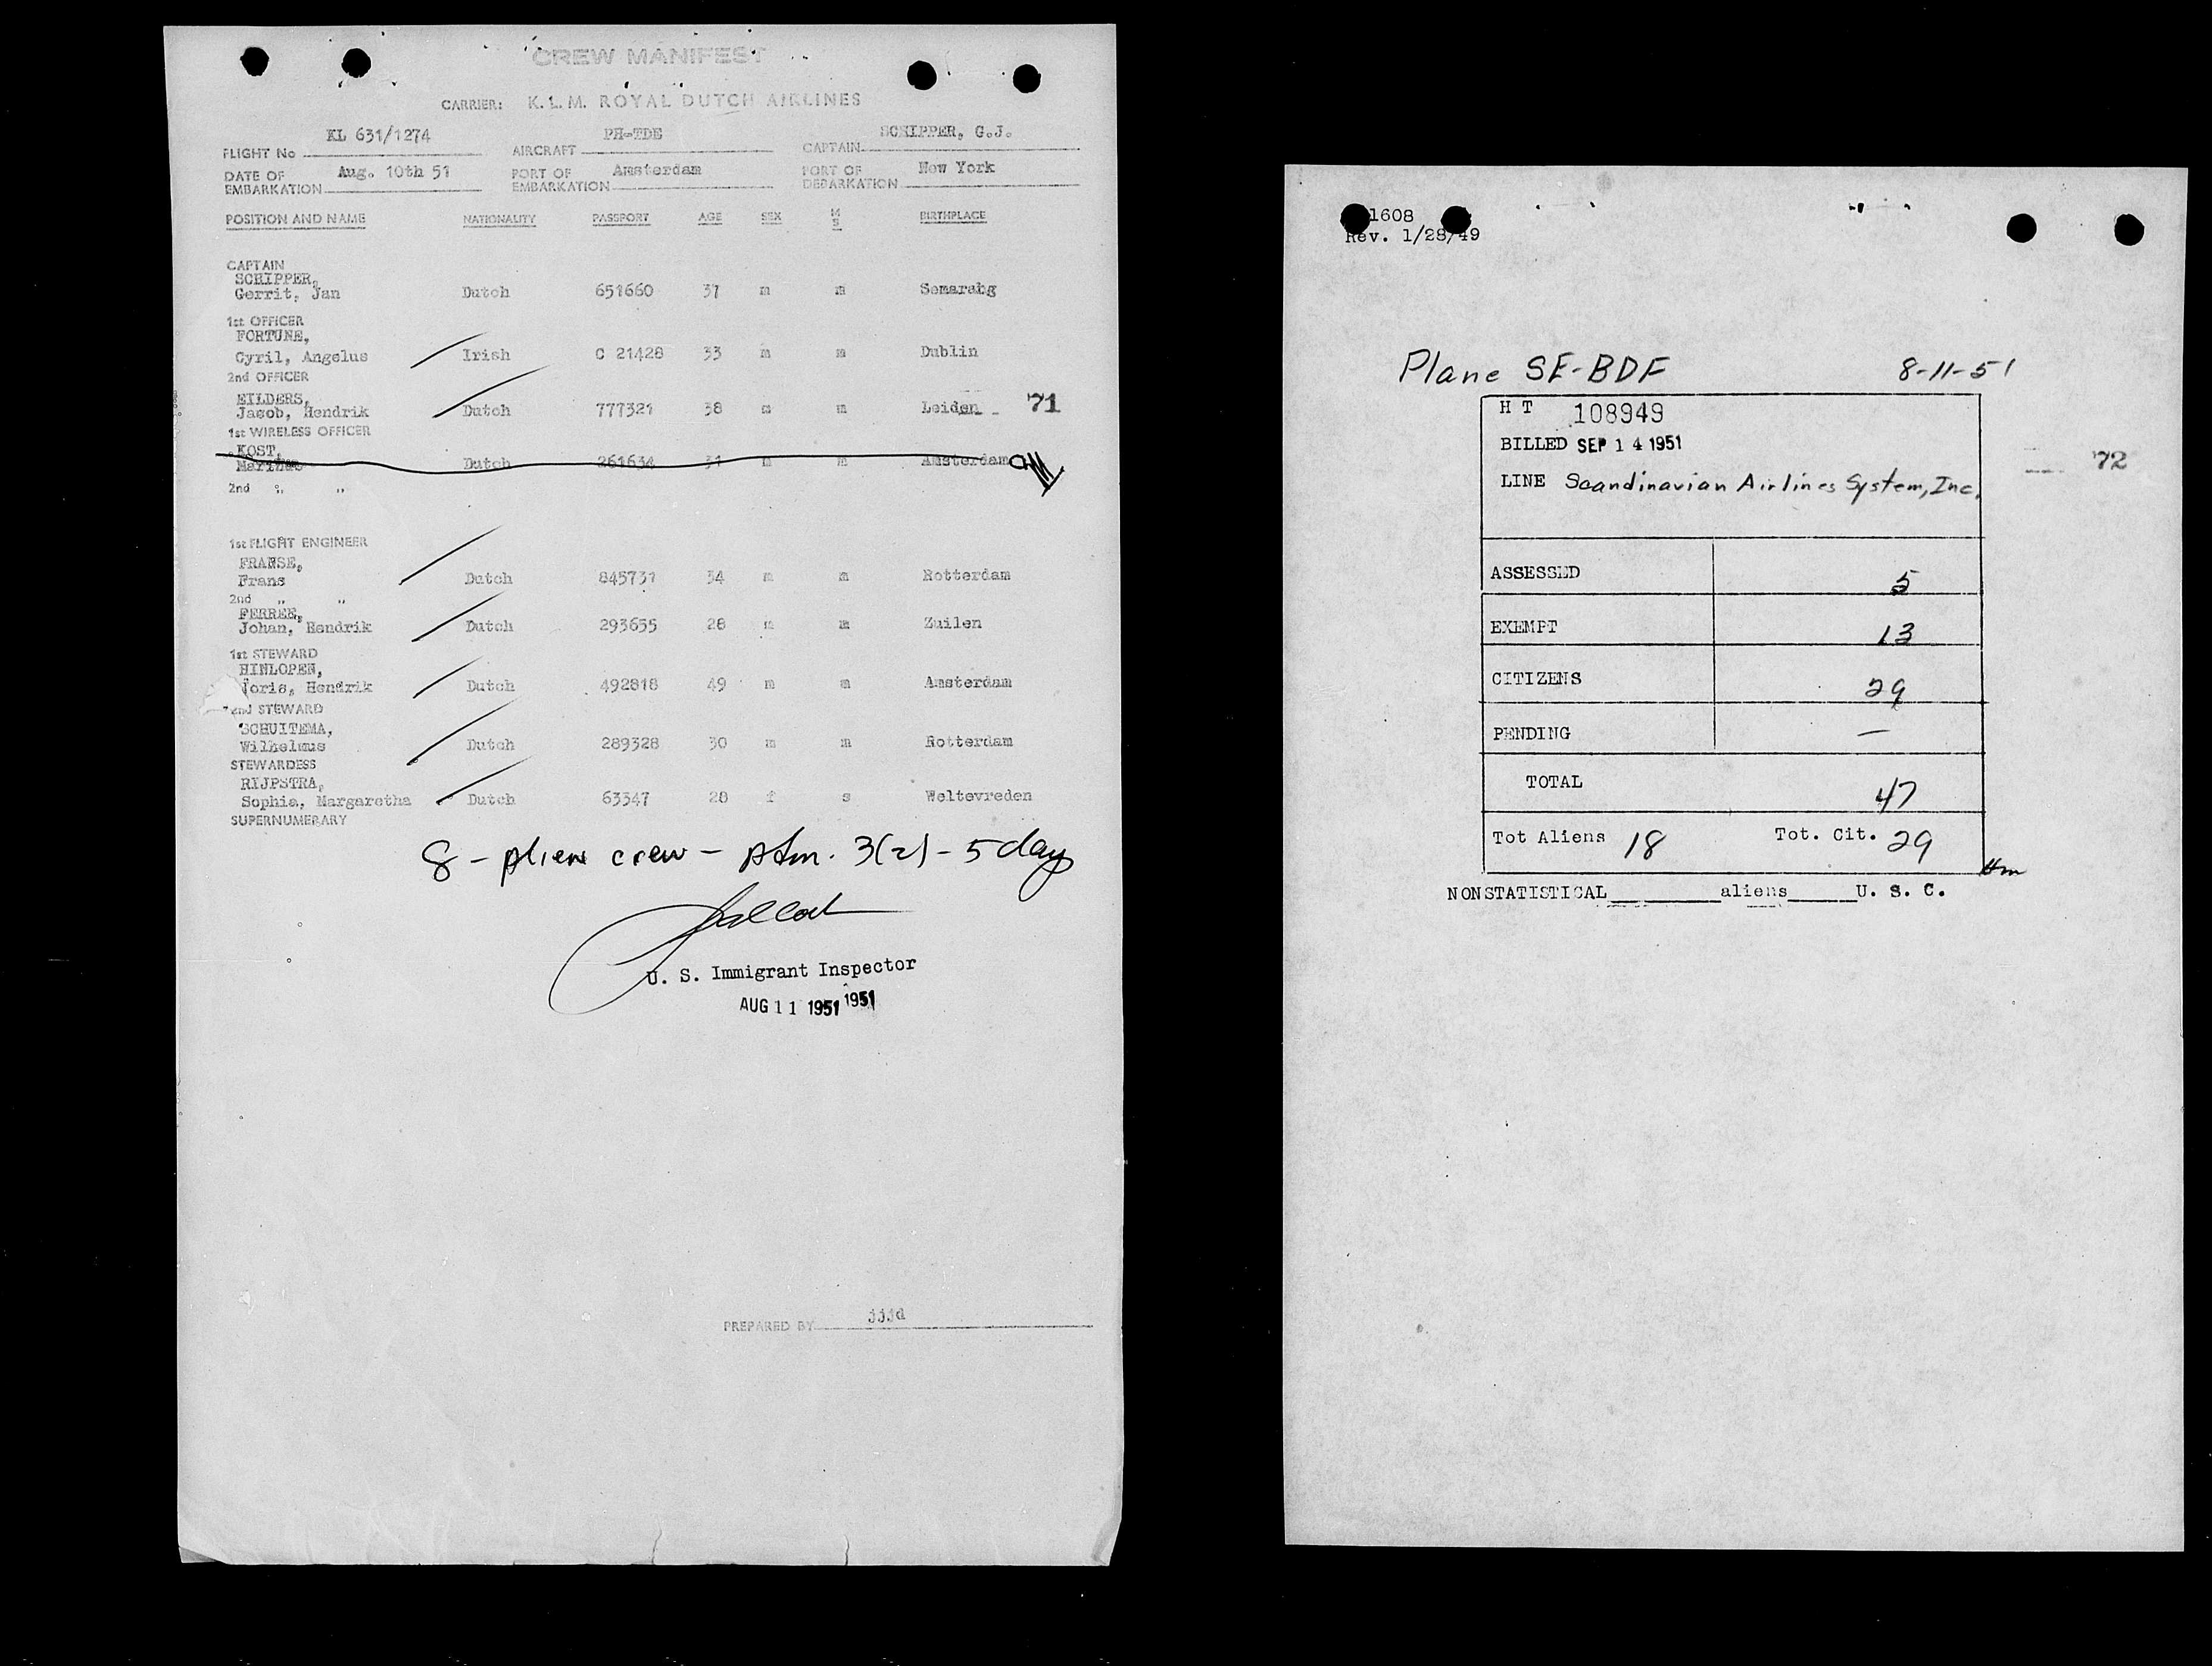 CREW MANIFEST
CARRIER: K.L.M. ROYAL DUTCH AIRLINES
FLIGHT No KL 631/1274 AIRCRAFT PH-TDE CAPTAIN SCHIPPER, G.J.
DATE OF EMBARKATION Aug. 10th 51 PORT OF EMBARKATION Amsterdam PORT OF DEBARKATION New York
POSITION AND NAME NATIONALITY PASSPORT AGE SEX M S BIRTHPLACE
CAPTAIN
SCHIPPER,
Gerrit, Jan Dutch 651660 37 m m Semarabg
1st OFFICER
FORTUNE,
Cyril, Angelus Irish C 21428 33 m m Dublin
2nd OFFICER
EILDERS,
Jacob, Hendrik Dutch 777321 38 m m Leiden 71
1st WIRELESS OFFICER
KOST,
Marinus Dutch 261634 31 m m Amsterdam
2nd " "
1st FLIGHT ENGINEER
FRANSE,
Frans Dutch 845731 34 m m Rotterdam
2nd " "
FERREE,
Johan, Hendrik Dutch 293635 28 m m Zuilen
1st STEWARD
HINLOPEN,
Joris, Hendrik Dutch 492818 49 m m Amsterdam
2nd STEWARD
SCHUITEMA,
Wilhelmus Dutch 289328 30 m m Rotterdam
STEWARDESS
RIJPSTRA,
Sophia, Margaretha Dutch 63347 28 f s Weltevreden
SUPERNUMERARY
8 - alien crew - adm. 3(2) - 5 day
U. S. Immigrant Inspector
AUG 11 1951 1951
PREPARED BY jjjd
1608
Rev. 1/28/49
Plane SE-BDF 8-11-51
H T 108949
BILLED SEP 14 1951
72
LINE Scandinavian Airlines System, Inc.
ASSESSED 5
EXEMPT 13
CITIZENS 29
PENDING —
TOTAL 47
Tot Aliens 18 Tot. Cit. 29
Hm
NONSTATISTICAL ______ aliens _____ U. S. C.